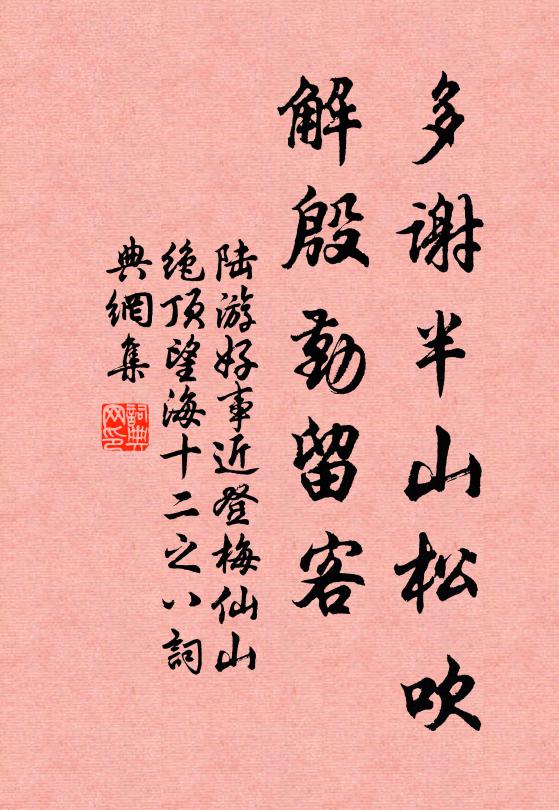 多谢半山松吹
解殷勤留客
陆游好事近登梅仙山
绝顶望海十二之八詞
典網集
詞典網印